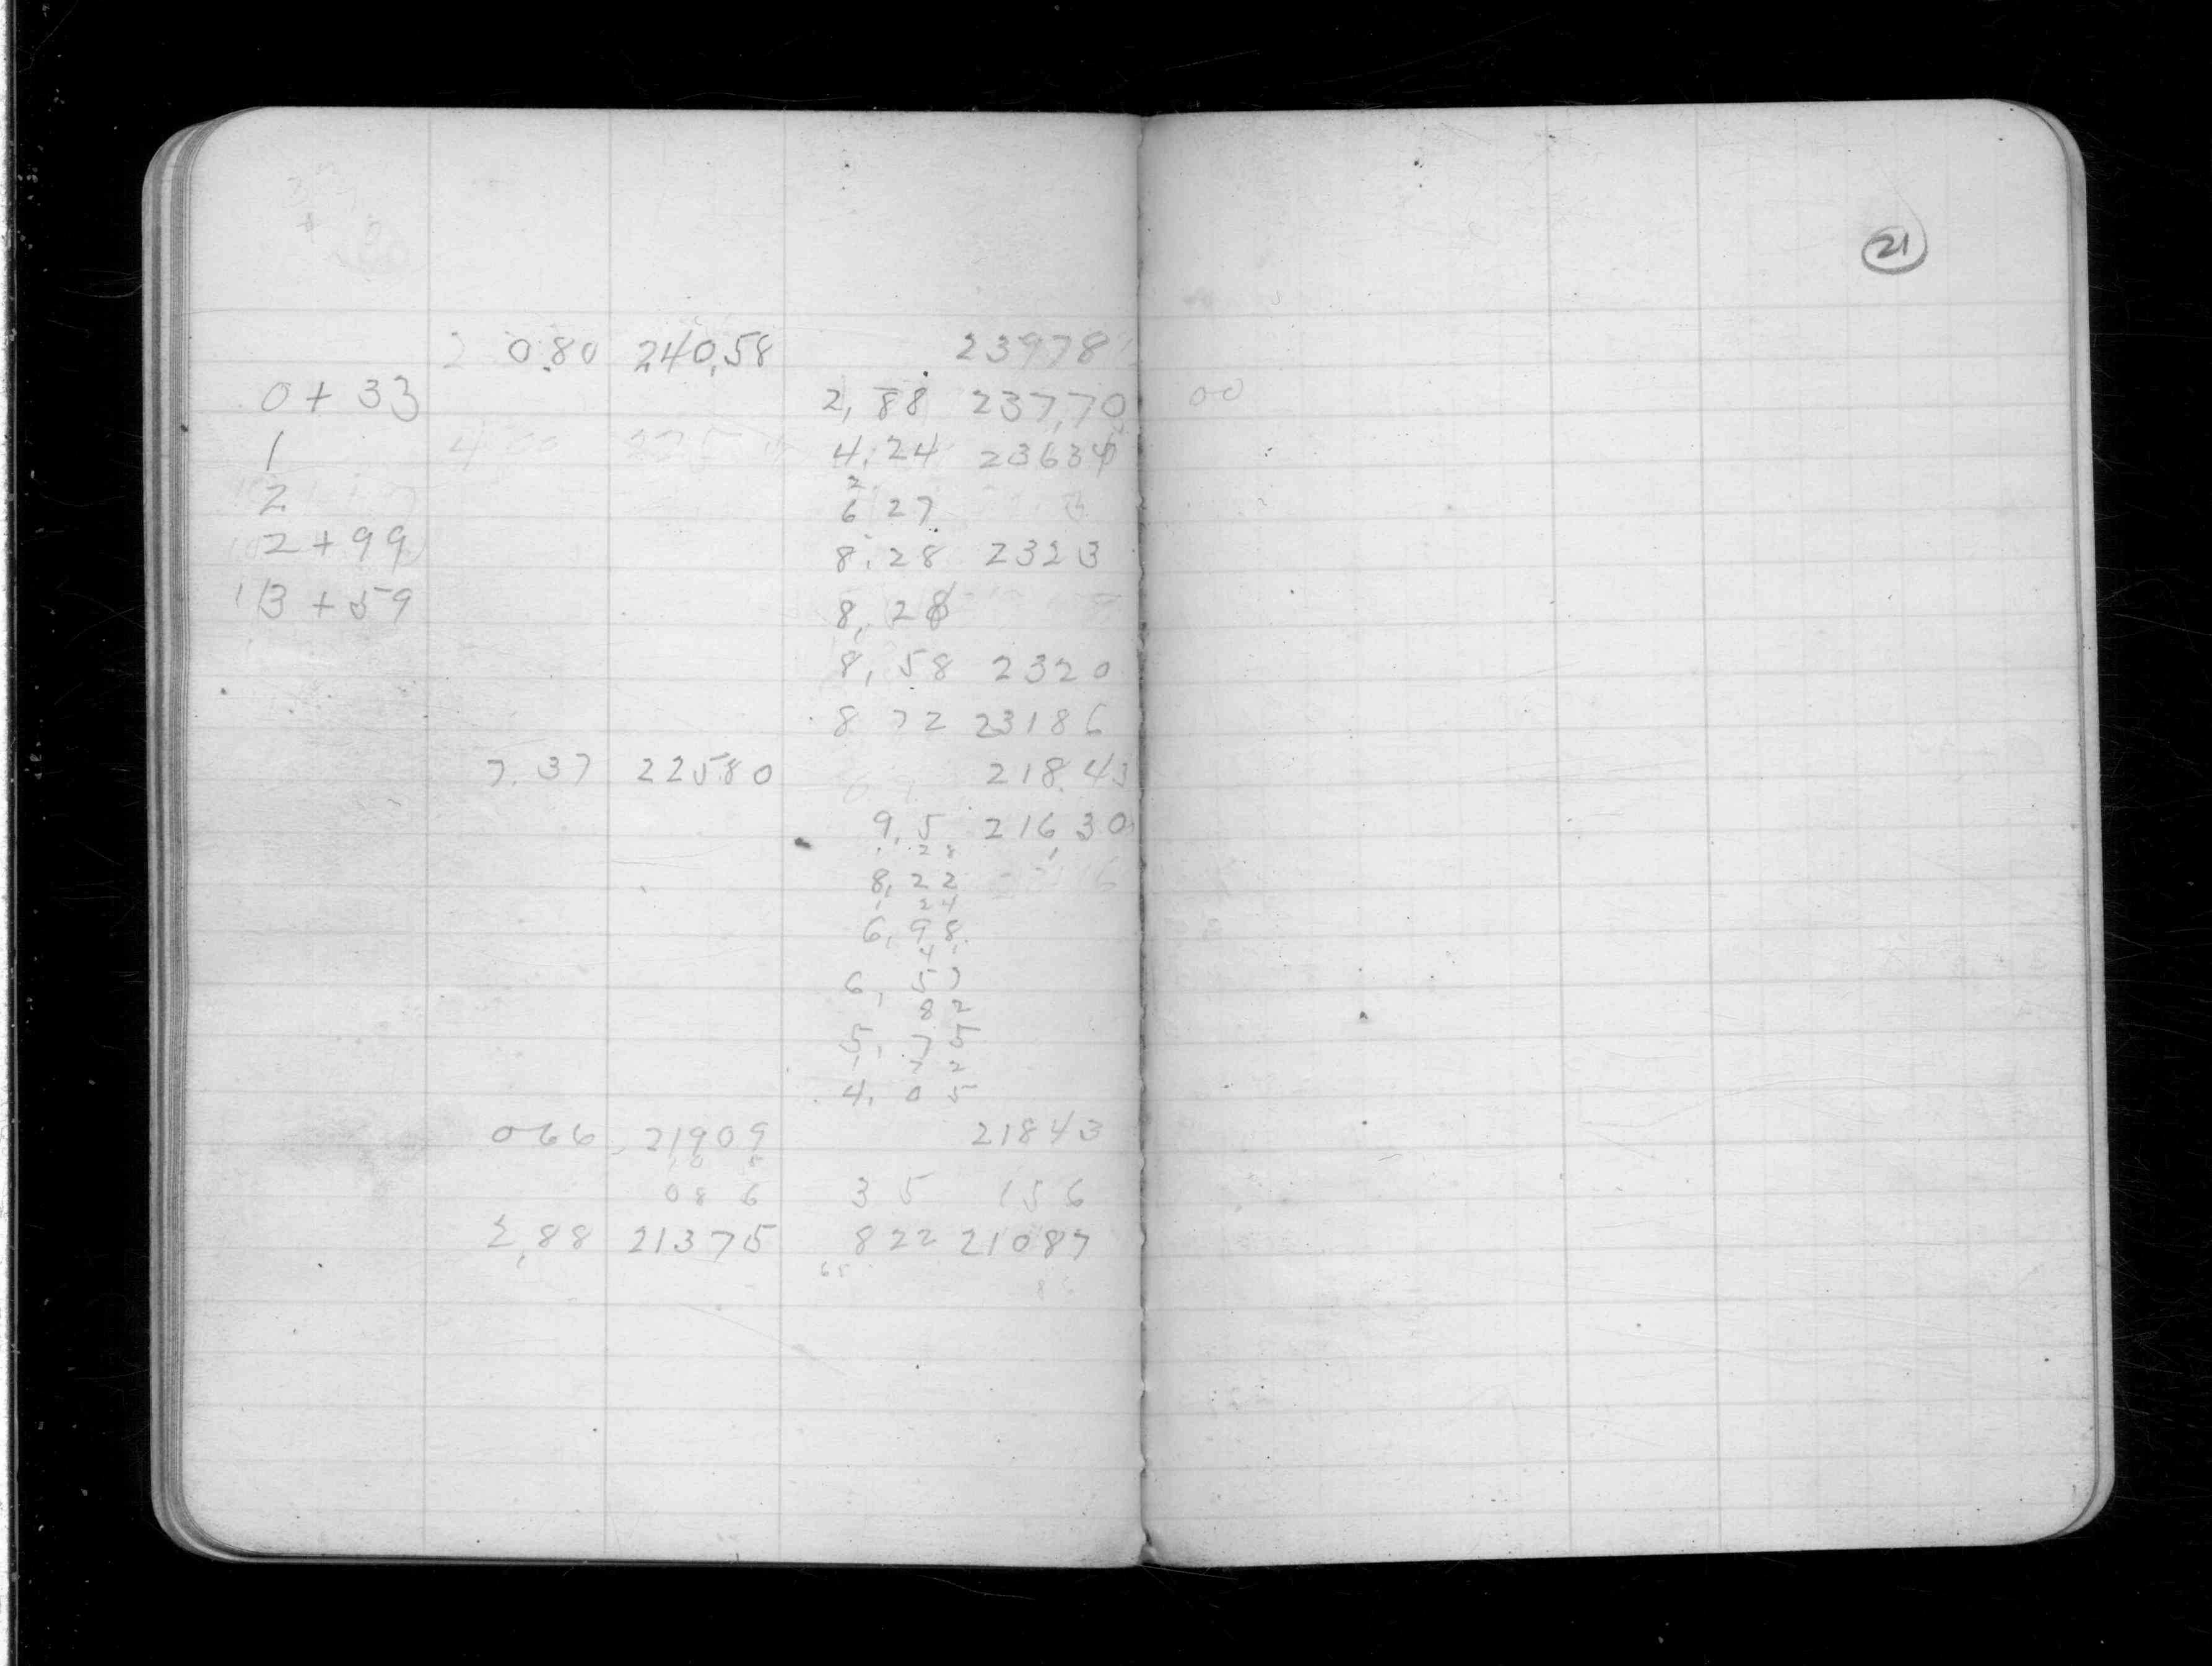 21
0.80 240,58 23978
0 + 33 2, 88 237,70 00
1 4.24 2363
2
2 6 27
2 + 99 8.28 2323
13 + 59 8, 28
8, 58 2320
8 72 23186
7.37 22580 218.43
9,5 216,30
28
8,22
1 24
6,98
41
6, 57
82
5, 75
1 72
4, 05
066 21909 21843
086 35 156
2,88 21375 822 21087
65